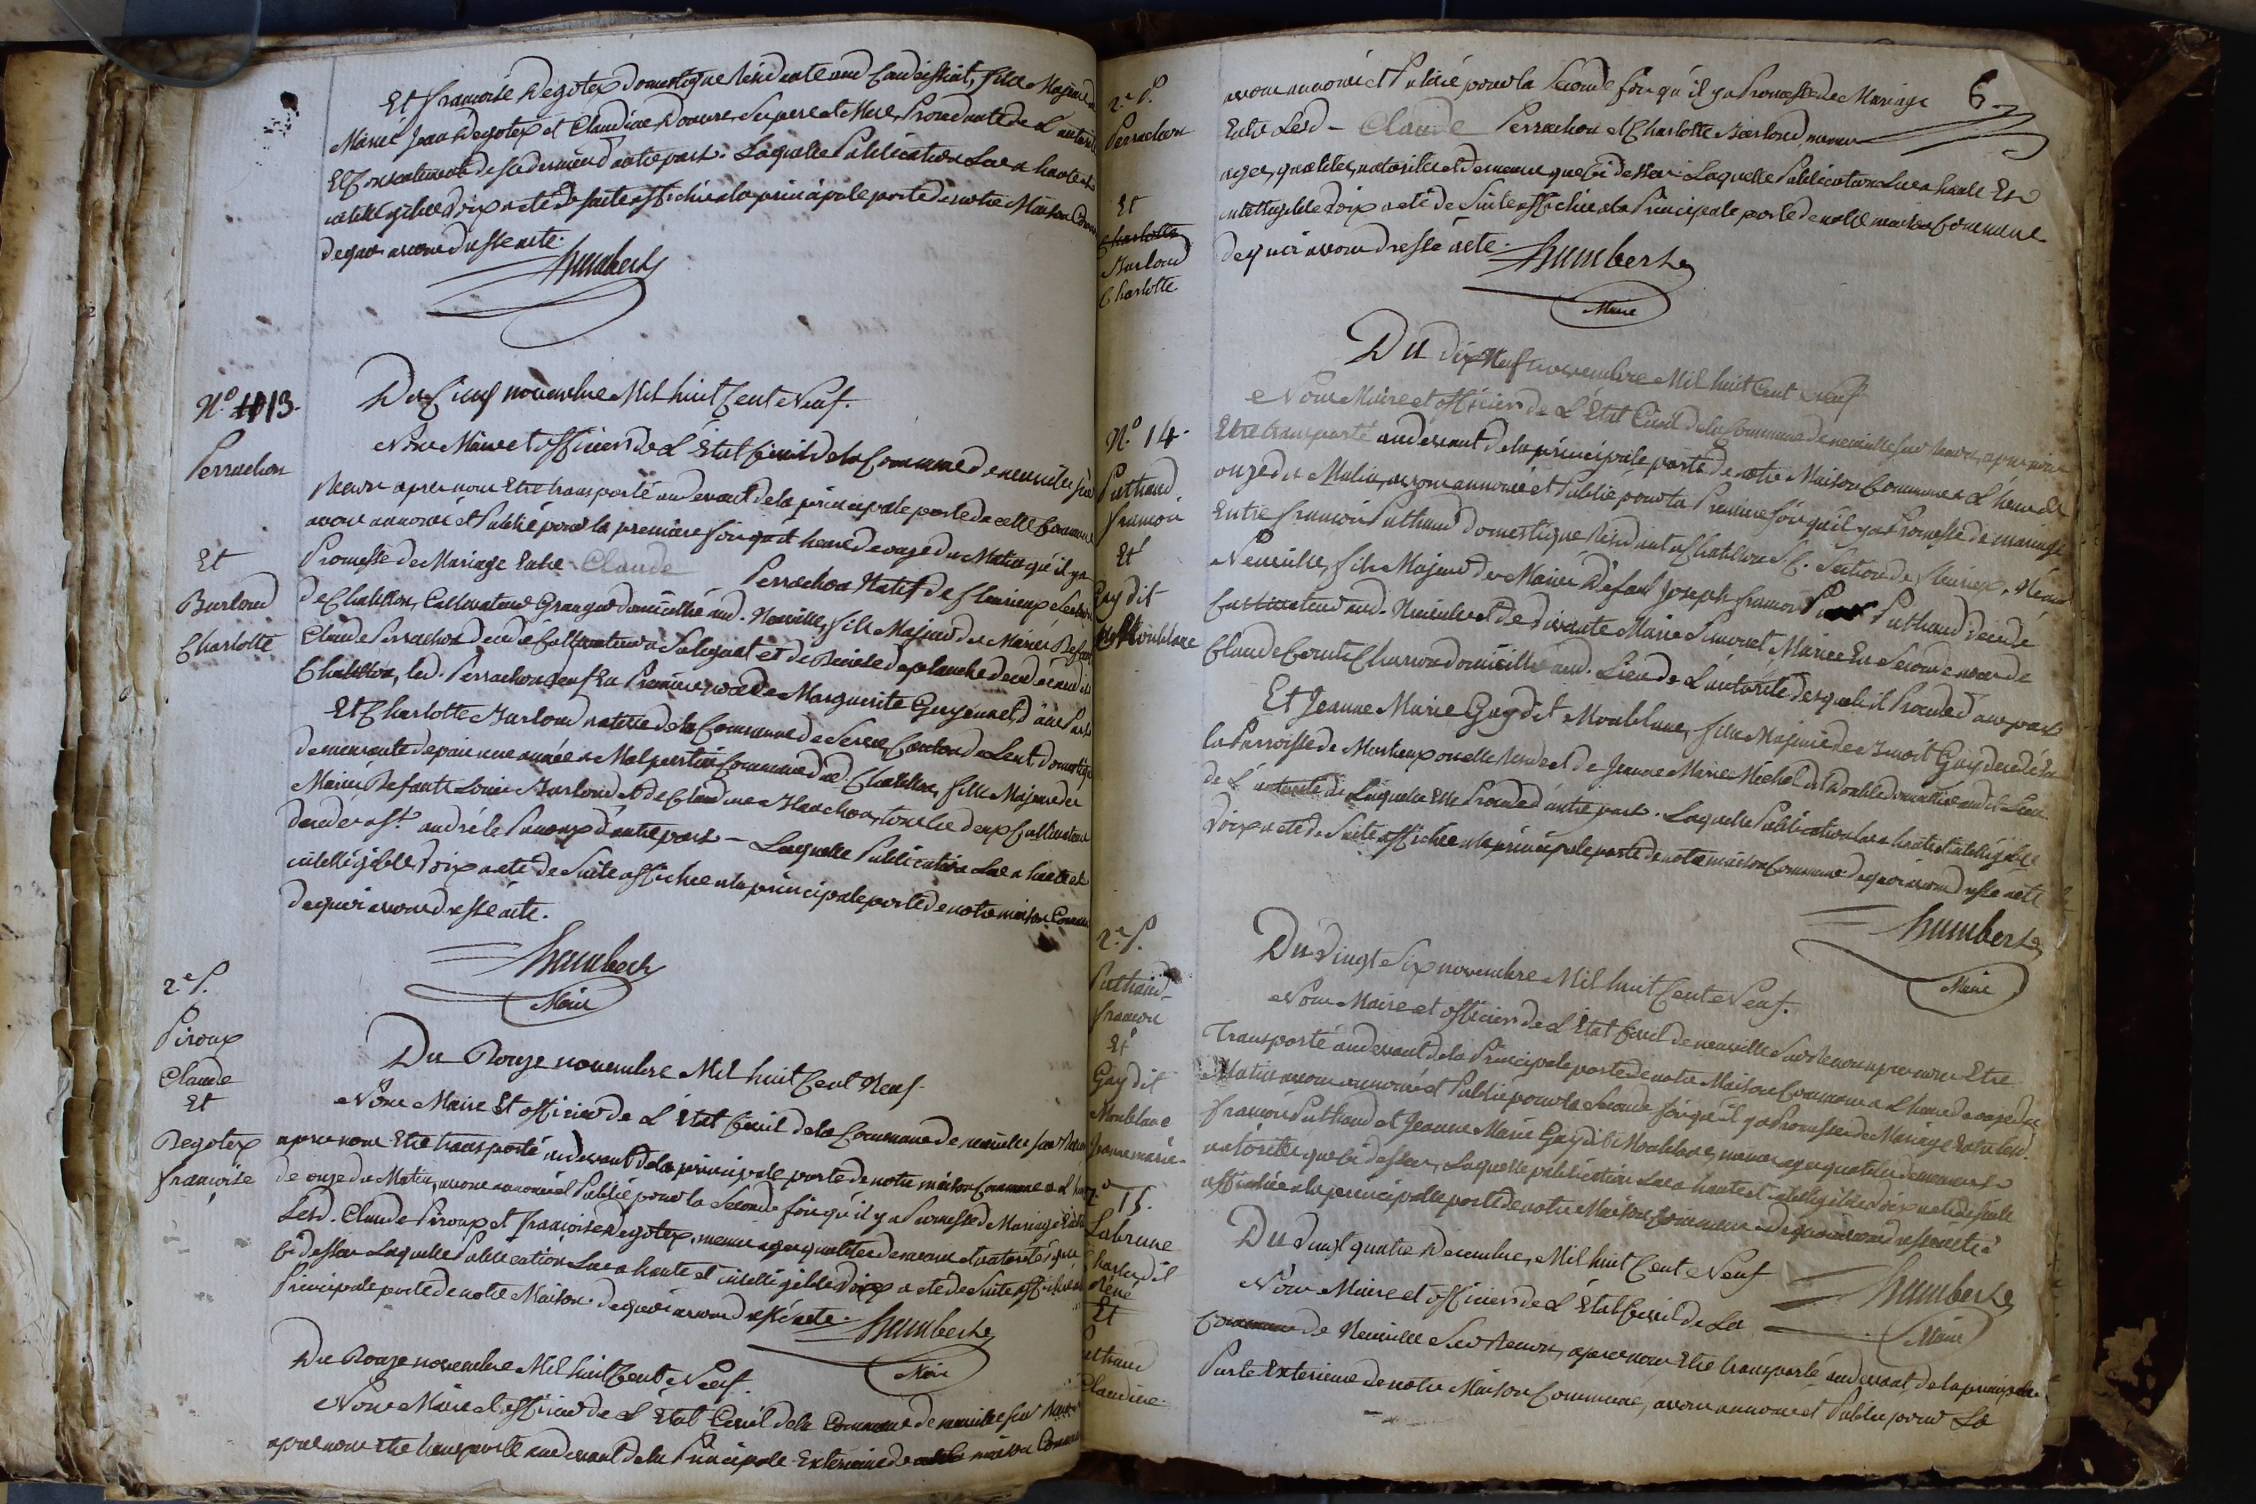 Et françoise Degotex domestique Residente aud. Condeissiat, fille Majeure de
Mariés Jean Degotex et Claudine Donure, Ses pere et Mere, Procedante de L'autorité
Et Consentement de ses derniers d'autre part. Laquelle Publication Lue a haute et
intelligible Voix a été de suite affichée a la principale porte de notre Maison Commune
dequoi avons dressé acte.
Humbert
N.º 13.
Du Cinq novembre Mil huit Cent Neuf.
Perrachon
Et
Burloud
Charlotte
Nous Maire et officier de L'Etat Civil de la Commune de neuville sur
Renon apres nous Etre transporté au devant de la principale porte de cette Commune
avons annoncé et Publié pour la premiere fois qu'a heure de onze du Matin qu'il y a
Promesse de Mariage Entre Claude Perrachon Natif de fleurieux Section
de Chatillon, Cultivateur Granger domicilié aud. Neuville, fils Majeur des Mariés Defunt
Claude Perrachon decedé Cultivateur a Saligniat et de Benoite Deplanche decedée aud.
Chatillon, led. Perrachon Veuf En Premiere noce de Marguerite Guyennet, d'une Part
Et Charlotte Burloud native de la Commune de Servas Canton de Lent domestique
demeurante depuis une année a Malpertui Commune dud. Chatillon, fille Majeure des
Mariés Defunts Louis Burloud et de Claudine Blanchon, tous les deux Cultivateurs
decedés a St. andré le Panoux d'autre part — Laquelle Publication Lue a haute et
intelligible Voix a été de Suite affichée a la principale porte de notre maison Commune
dequoi avons dressé acte.
Humbert
Maire
2e P.
Piroux
Claude
Et
Degotex
françoise
Du Douze novembre Mil huit Cent Neuf.
Nous Maire Et officier de L'Etat Civil de la Commune de neuville sur Renon
apres nous Etre transporté au devant de la principale porte de notre maison Commune a L'heure
de onze du Matin, avons annoncé et Publié pour la Seconde fois qu'il y a Promesse de Mariage Entre
Lesd. Claude Piroux et françoise Degotex, memes ages qualités demeures et autorités que
Ci dessus Laquelle Publication Lue a haute et intelligible Voix a été de Suite affichée a la
Principale porte de notre Maison dequoi avons dressé acte.
Humbert
Maire
Du Douze novembre Mil huit Cent Neuf.
Nous Maire et officier de L'Etat Civil de la Commune de neuville sur Renon
apres nous Etre transporté au devant de la Principale Exterieure de notre maison Commune
6
2e P.
Perrachon
Et
Charlotte
Burloud
Charlotte
avons annoncé et Publié pour la Seconde fois qu'il y a Promesse de Mariage
Entre Lesd. Claude Perrachon et Charlotte Burloud, memes
ages, qualités, autorités et demeures que Ci dessus Laquelle Publication Lue a haute Et
intelligible Voix a été de Suite affichée a la Principale porte de notre maison Commune
dequoi avons dressé acte.
Humbert
Maire
Du dix Neuf novembre Mil huit Cent Neuf
N.º 14.
Puthaud
françois
Et
Guy dit
Monblanc
Nous Maire et officier de L'Etat Civil de la Commune de neuville sur Renon, apres nous
Etre transporté au devant de la principale porte de notre Maison Commune a L'heure de
onze du Matin, avons annoncé et Publié pour la Premiere fois qu'il y a Promesse de mariage
Entre françois Puthaud domestique Residant a Chatillon Section de fleurieux, Né aud
Neuville, fils Majeur des Mariés Defunt Joseph françois Puthaud decedé
Cultivateur aud. Neuville et de Vivante Marie Simonet Mariée En Seconde noces de
Claude Comte Charron domicilié aud. Lieu de L'autorité desquels il Procede d'une part
Et Jeanne Marie Guy dit Monblanc, fille Majeure de Benoit Guy decedé En
La Parroisse de Marlieux ou elle Reside et de Jeanne Marie Michel domiciliée aud. Lieu
de L'autorité de Laquelle Elle Procede d'autre part. Laquelle Publication Lue a haute et intelligible
Voix a été de Suite affichée a la principale porte de notre maison Commune dequoi avons dressé acte
Humbert
Maire
2e P.
Puthaud
françois
Et
Guy dit
Monblanc
Jeanne marie
Du Vingt Six novembre Mil huit Cent Neuf.
Nous Maire et officier de L'Etat Civil de neuville Sur Renon apres nous Etre
Transporté au devant de la Principale porte de notre Maison Commune a L'heure de onze du
Matin avons annoncé et Publié pour la Seconde fois qu'il y a Promesse de Mariage Entre Lesd.
françois Puthaud et Jeanne Marie Guy dit Monblanc, memes ages qualités demeures et
autorités que Ci dessus, Laquelle publication Lue a haute et intelligible Voix a été de suite
affichée a la principale porte de notre Maison Commune dequoi avons dressé acte
Humbert
Maire
15.
Labrune
Charles dit
Réné
Et
Puthaud
Claudine.
Du Vingt quatre Decembre, Mil huit Cent Neuf
Nous Maire et officier de L'Etat Civil de La
Commune de Neuville Sur Renon, apres nous Etre transporté au devant de la principale
Porte Exterieure de notre Maison Commune, avons annoncé et Publié pour La